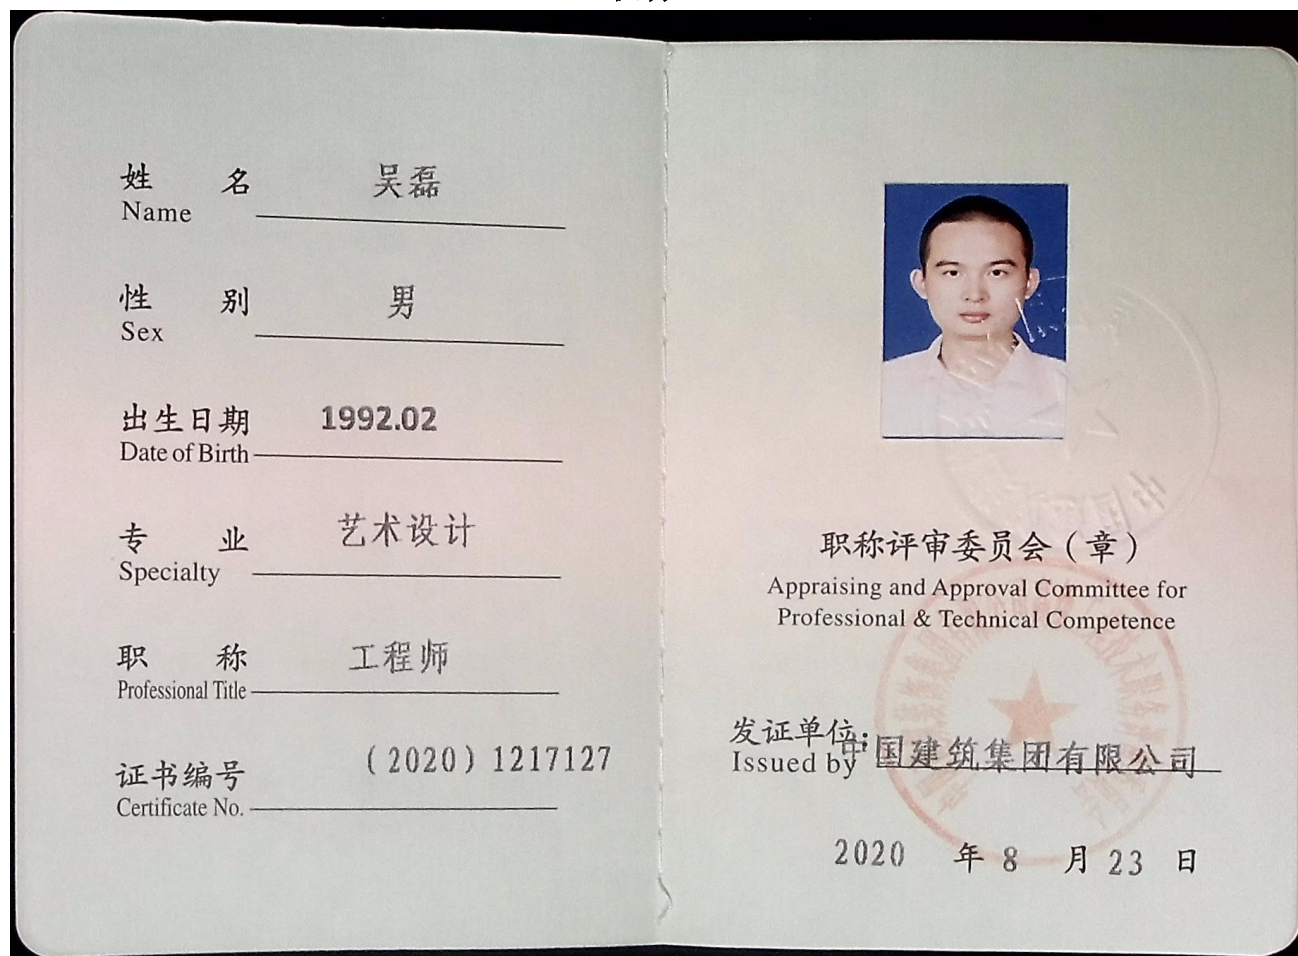 姓名 吴磊
Name
性别 男
Sex
出生日期 1992.02
Date of Birth
专业 艺术设计
Specialty
职称 工程师
Professional Title
证书编号 （2020）1217127
Certificate No.
职称评审委员会（章）
Appraising and Approval Committee for
Professional & Technical Competence
发证单位: 中国建筑集团有限公司
Issued by
2020 年 8 月 23 日